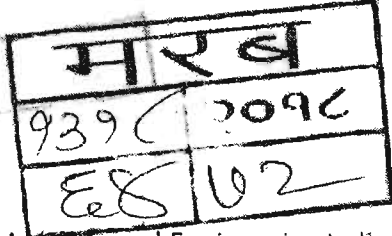 मरब
१३१८ २०१८
६४ ७२